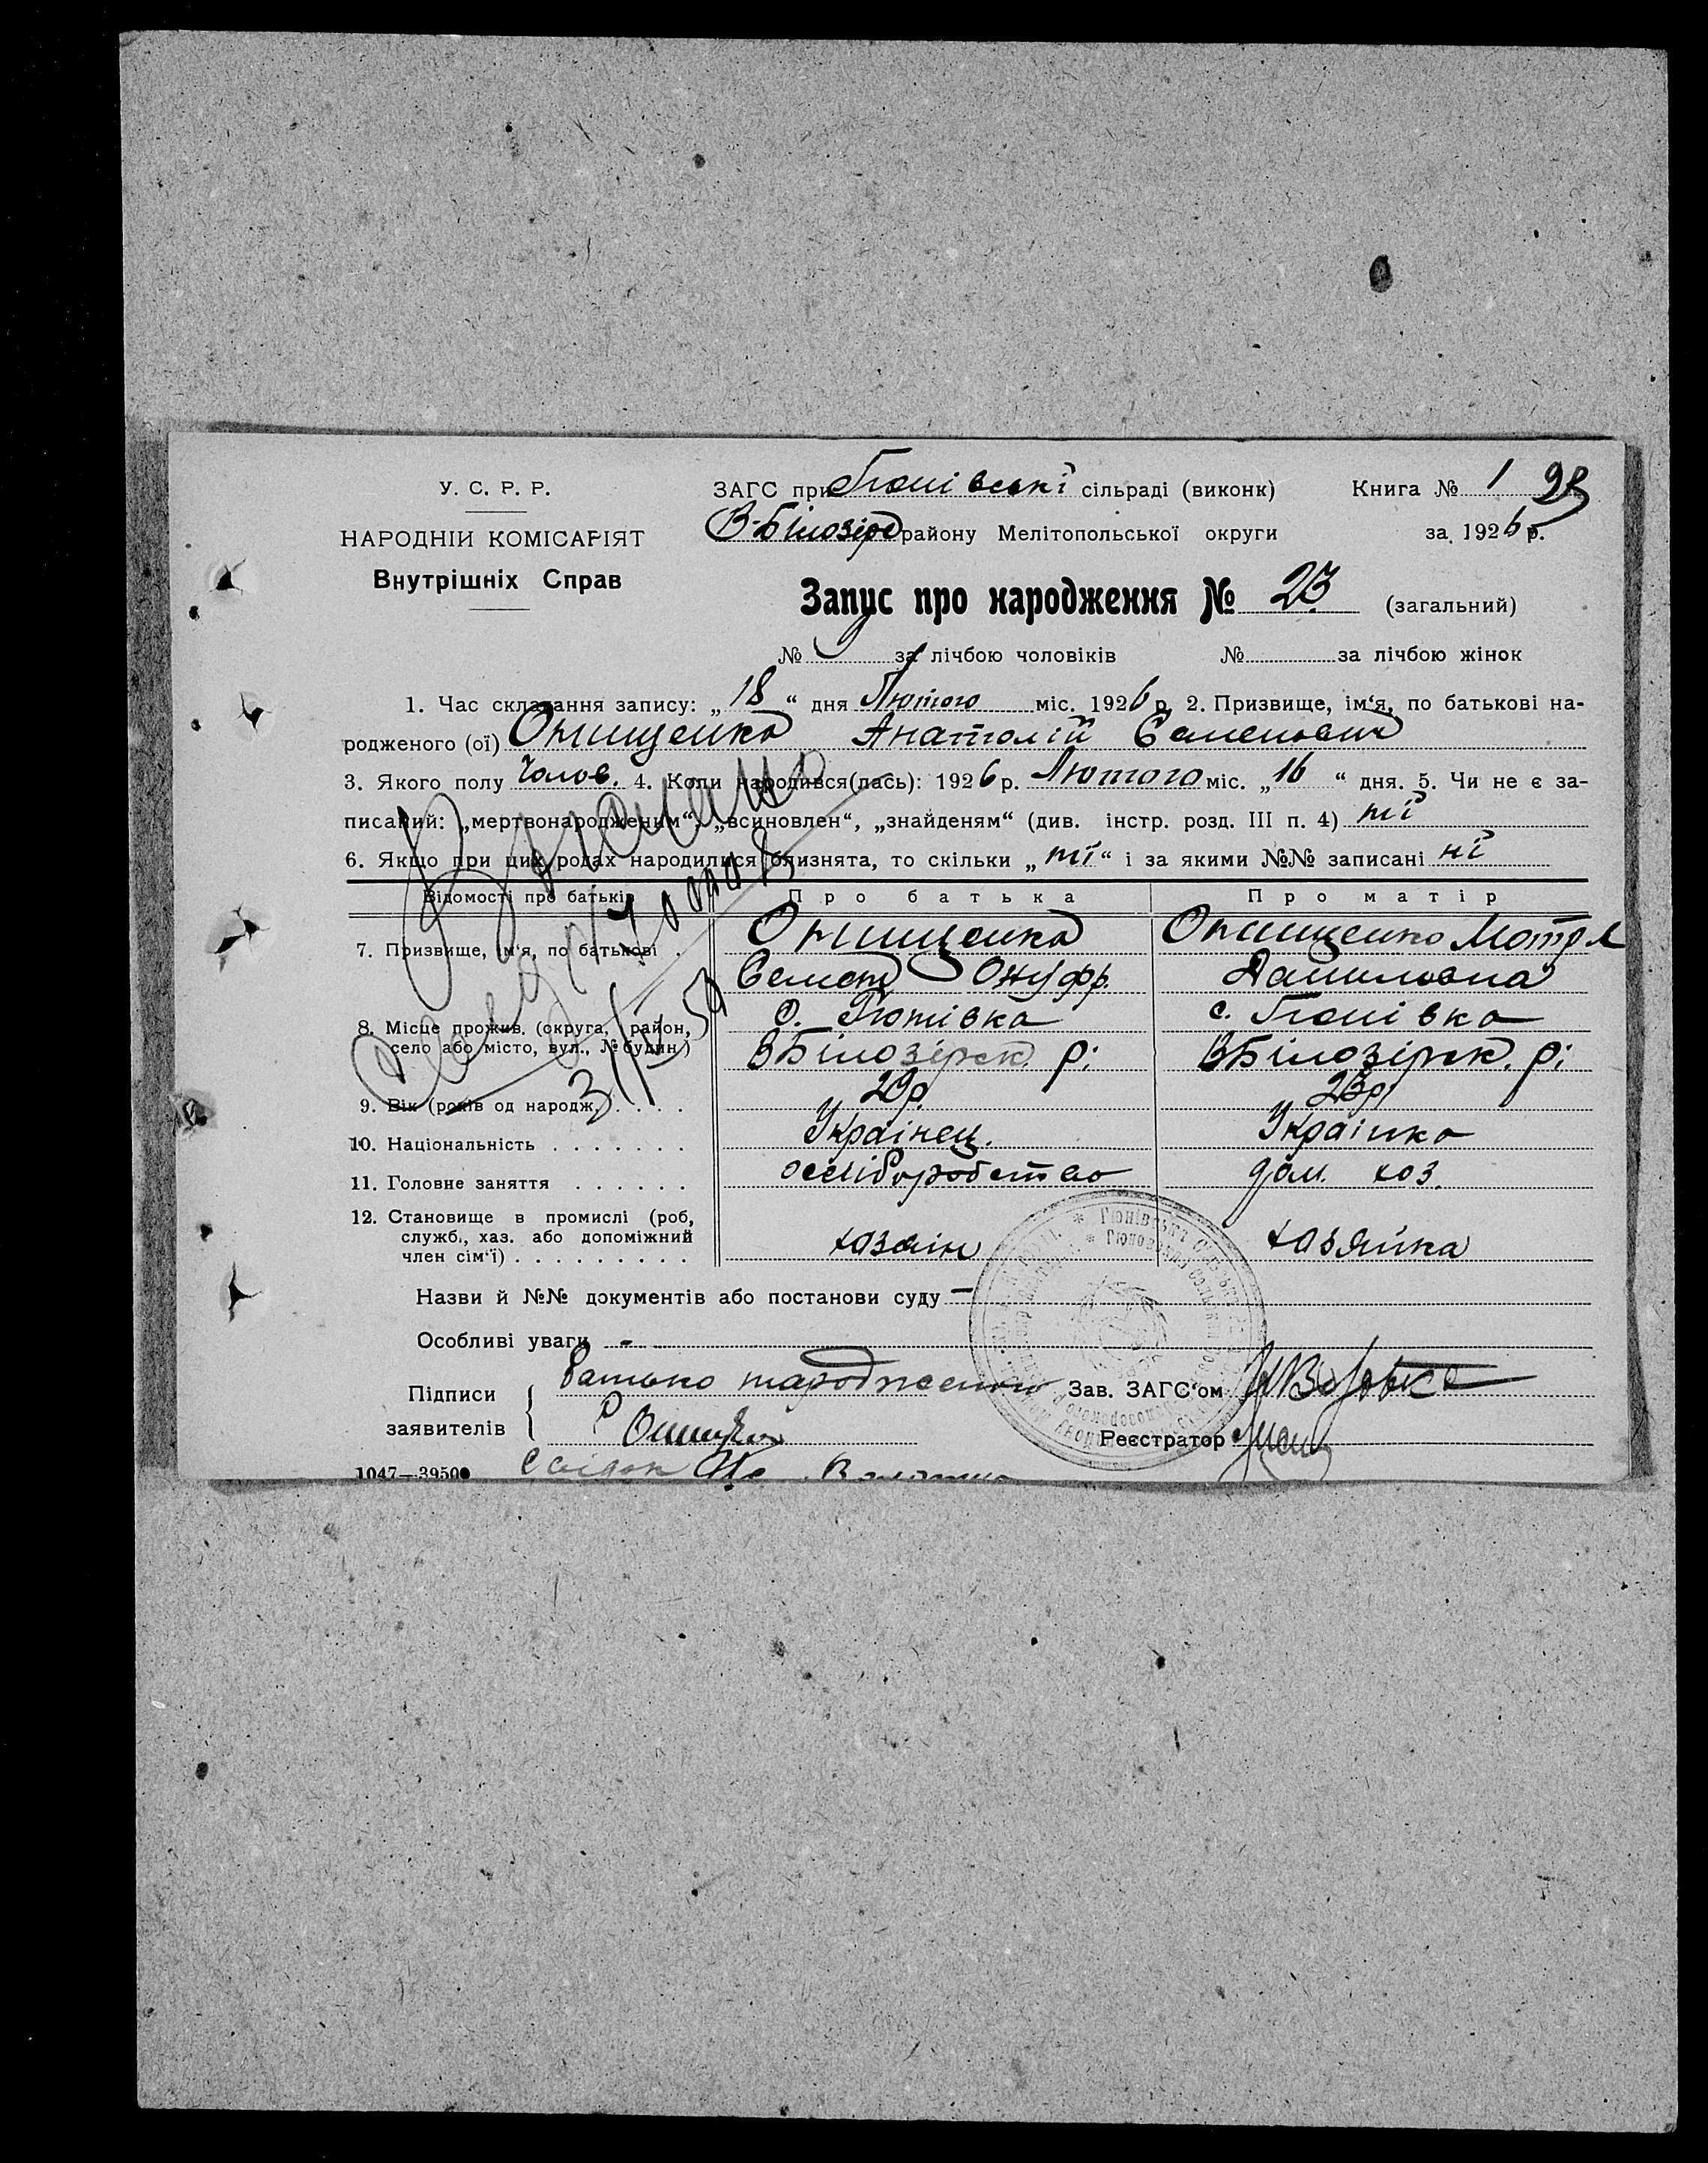 У. С. Р. Р.
НАРОДНІЙ КОМІСАРІЯТ
Внутрішніх Справ
ЗАГС при Гюнівські сільраді (виконк) Книга № 1
В-Білозірс району Мелітопольської округи за 1926 р.
Запис про народження № 23 (загальний)
№ за лічбою чоловіків № за лічбою жінок
1. Час складання запису: „18“ дня Лютого міс. 1926 р. 2. Призвище, ім‘я, по батькові на-
родженого (ої) Онищенко Анатолій Семенович
3. Якого полу Чолов. 4. Коли народився(лась): 1926 р. Лютого міс. „16“ дня. 5. Чи не є за-
писаний: „мертвонародженим“, „всиновлен“, „знайденям“ (див. інстр. розд. III п. 4) ні
6. Якщо при цих родах народилися близнята, то скільки „ні“ і за якими №№ записані ні
Відомості про батьків Про батька Про матір
7. Призвище, ім‘я, по батькові Онищенко Онищенко Мотря
Семен Онуфр. Даниловна
8. Місце прожив. (округа, район, с. Гюнівка с. Гюнівка
село або місто, вул., № будин.) ВБілозірск. р: ВБілозірск. р:
9. Вік (років од народж.) 29р. 23р
10. Національність Українец. Українка
11. Головне заняття дом. хоз.
12. Становище в промислі (роб,
служб., хаз. або допоміжний хазяін хазяйка
член сім‘ї)
Назви й №№ документів або постанови суду —
Особливі уваги -
Підписи батько народженого Зав. ЗАГС‘ом
заявителів Реєстратор
1047—39500